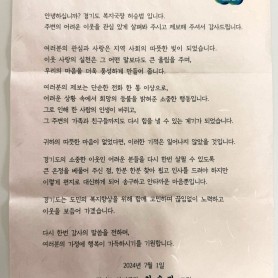 안녕하십니까? 경기도 복지국장 허승범 입니다.
주변의 어려운 이웃을 관심 있게 살펴봐 주시고 제보해 주셔서 감사드립니다.
여러분의 관심과 사랑은 지역 사회의 따뜻한 빛이 되었습니다.
이웃 사랑의 실천은 그 어떤 말보다도 큰 울림을 주며,
우리의 마음을 더욱 풍성하게 만들어 줍니다.
여러분의 제보는 단순한 전화 한 통 이상으로,
어려운 상황 속에서 희망의 등불을 밝혀준 소중한 행동입니다.
그로 인해 한 사람의 인생이 바뀌고
그 주변의 가족과 친구들까지도 다시 힘을 낼 수 있는 계기가 되었습니다.
귀하의 따뜻한 마음이 없었다면, 이러한 기적은 일어나지 않았을 것입니다.
경기도의 소중한 이웃인 어려운 분들을 다시 한번 살필 수 있도록
큰 은정을 베풀어 주신 점, 한분 한분 찾아 뵙고 인사를 드려야 하지만
이렇게 편지로 대신하게 되어 송구하고 안타까운 마음뿐입니다.
경기도는 도민의 복지향상을 위해 함께 고민하며 끊임없이 노력하고
이웃을 보듬어 가겠습니다.
다시 한번 감사의 말씀을 전하며,
여러분의 가정에 행복이 가득하시기를 기원합니다.
2024년 7월 1일